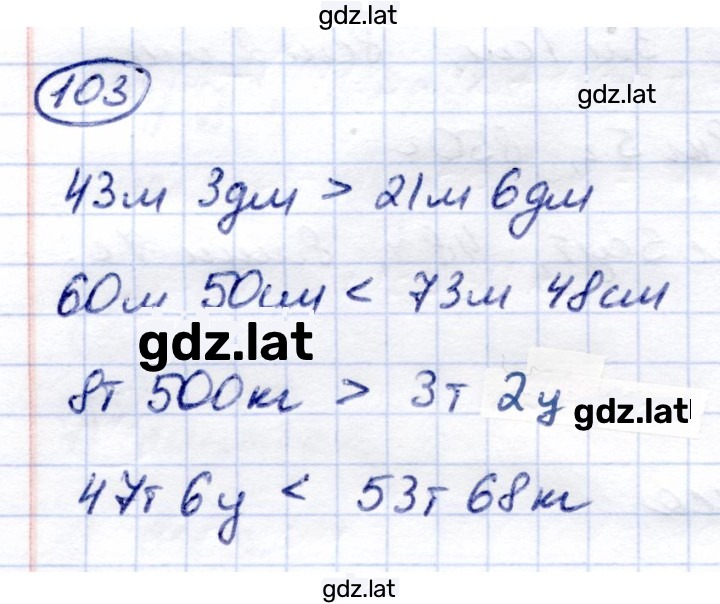 gdz.lat
103
gdz.lat
43м 3дм > 21м 6дм
60м 50см < 73м 48см
gdz.lat
8т 500кг > 3т 2ц
gdz.lat
47т 6ц < 53т 68кг
gdz.lat